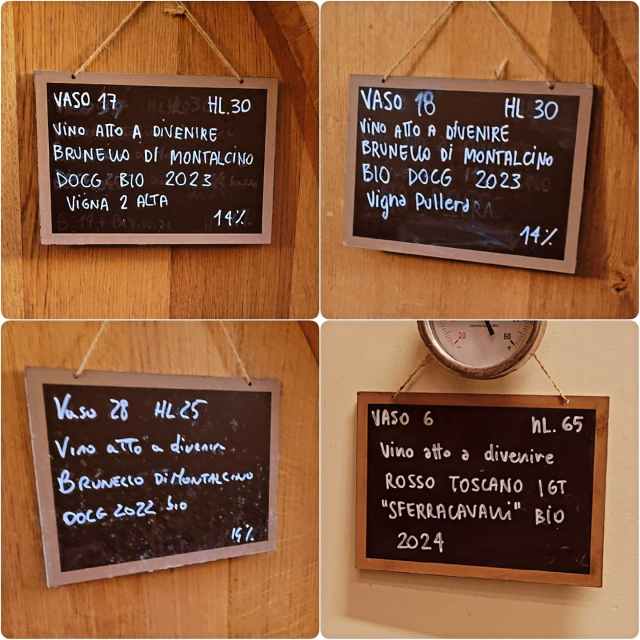 VASO 17 HL.30
VINO ATTO A DIVENIRE
BRUNELLO DI MONTALCINO
DOCG BIO 2023
VIGNA 2 ALTA
14%
VASO 18 HL 30
VINO ATTO A DIVENIRE
BRUNELLO DI MONTALCINO
BIO DOCG 2023
Vigna Pullera
14%
Vaso 28 HL 25
Vino atto a divenire
BRUNELLO DI MONTALCINO
DOCG 2022 bio
14%
VASO 6 hL. 65
Vino atto a divenire
ROSSO TOSCANO IGT
"SFERRACAVALLI" BIO
2024